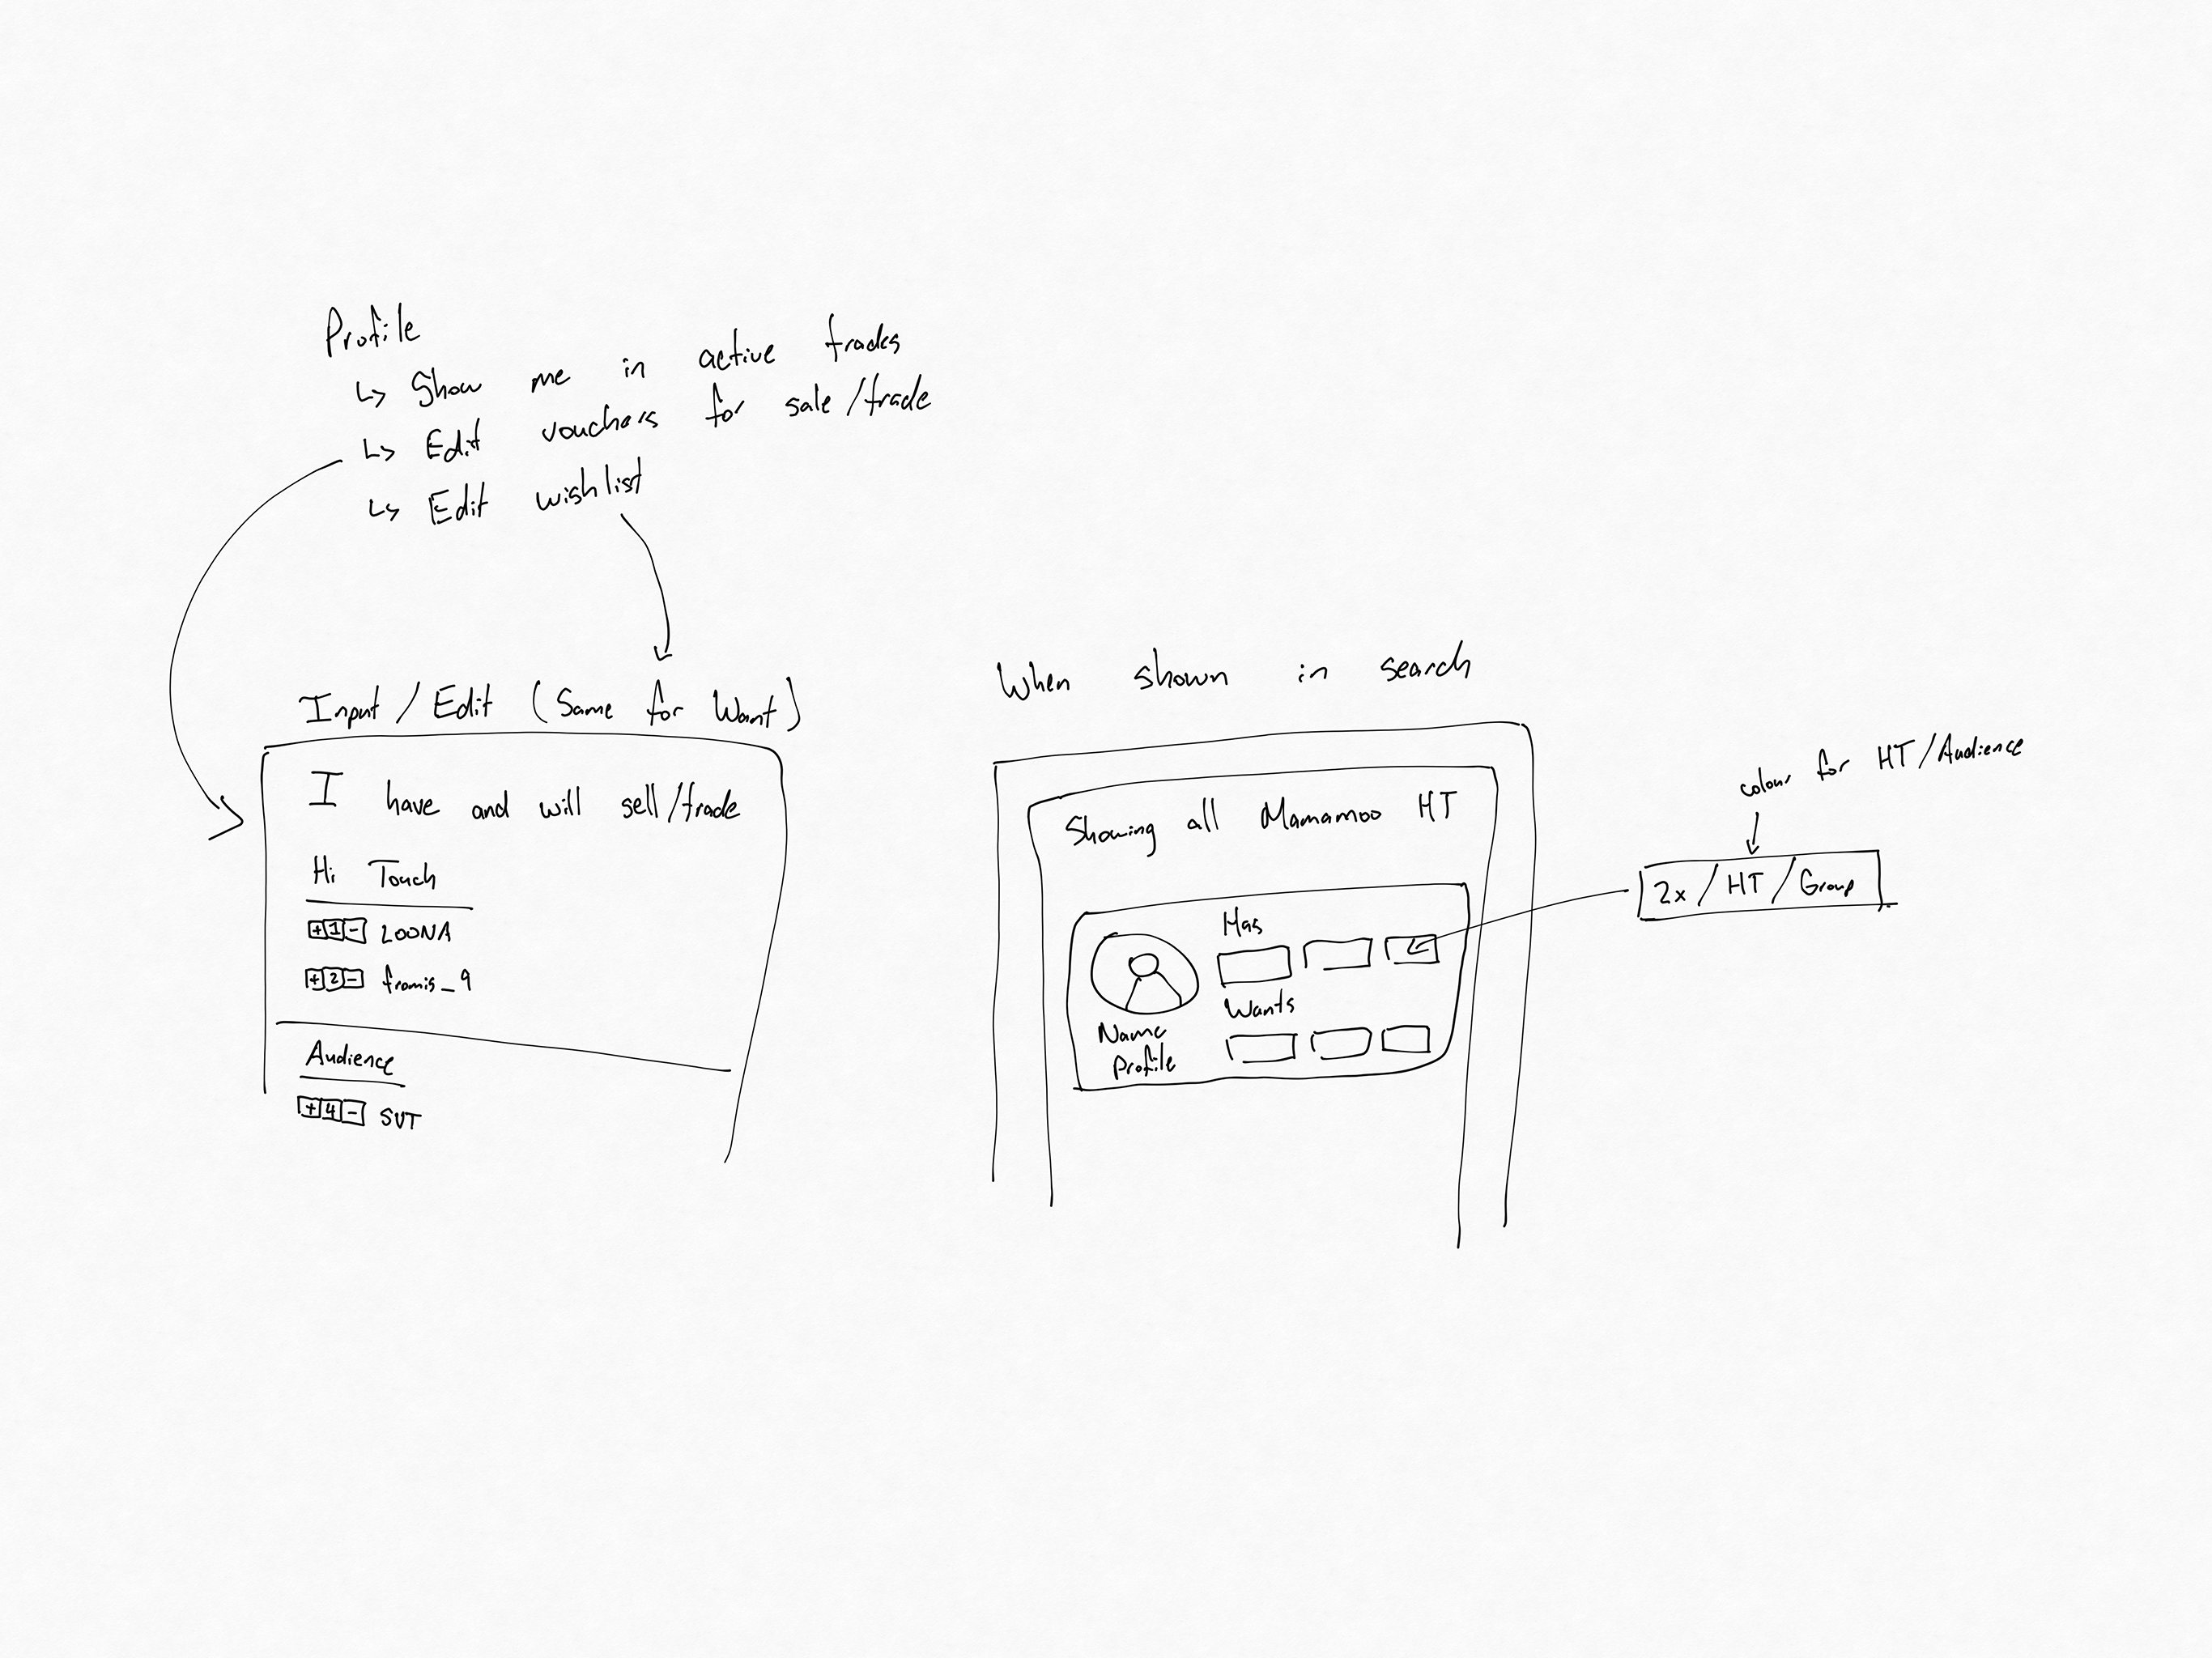 Profile
↳ Show me in active trades
↳ Edit vouchers for sale/trade
↳ Edit wishlist
Input / Edit (Same for Want)
I have and will sell/trade
Hi Touch
+ 1 - LOONA
+ 2 - fromis_9
Audience
+ 4 - SVT
When shown in search
Showing all Mamamoo HT
Has
Wants
Name
Profile
colour for HT/Audience
2x / HT / Group